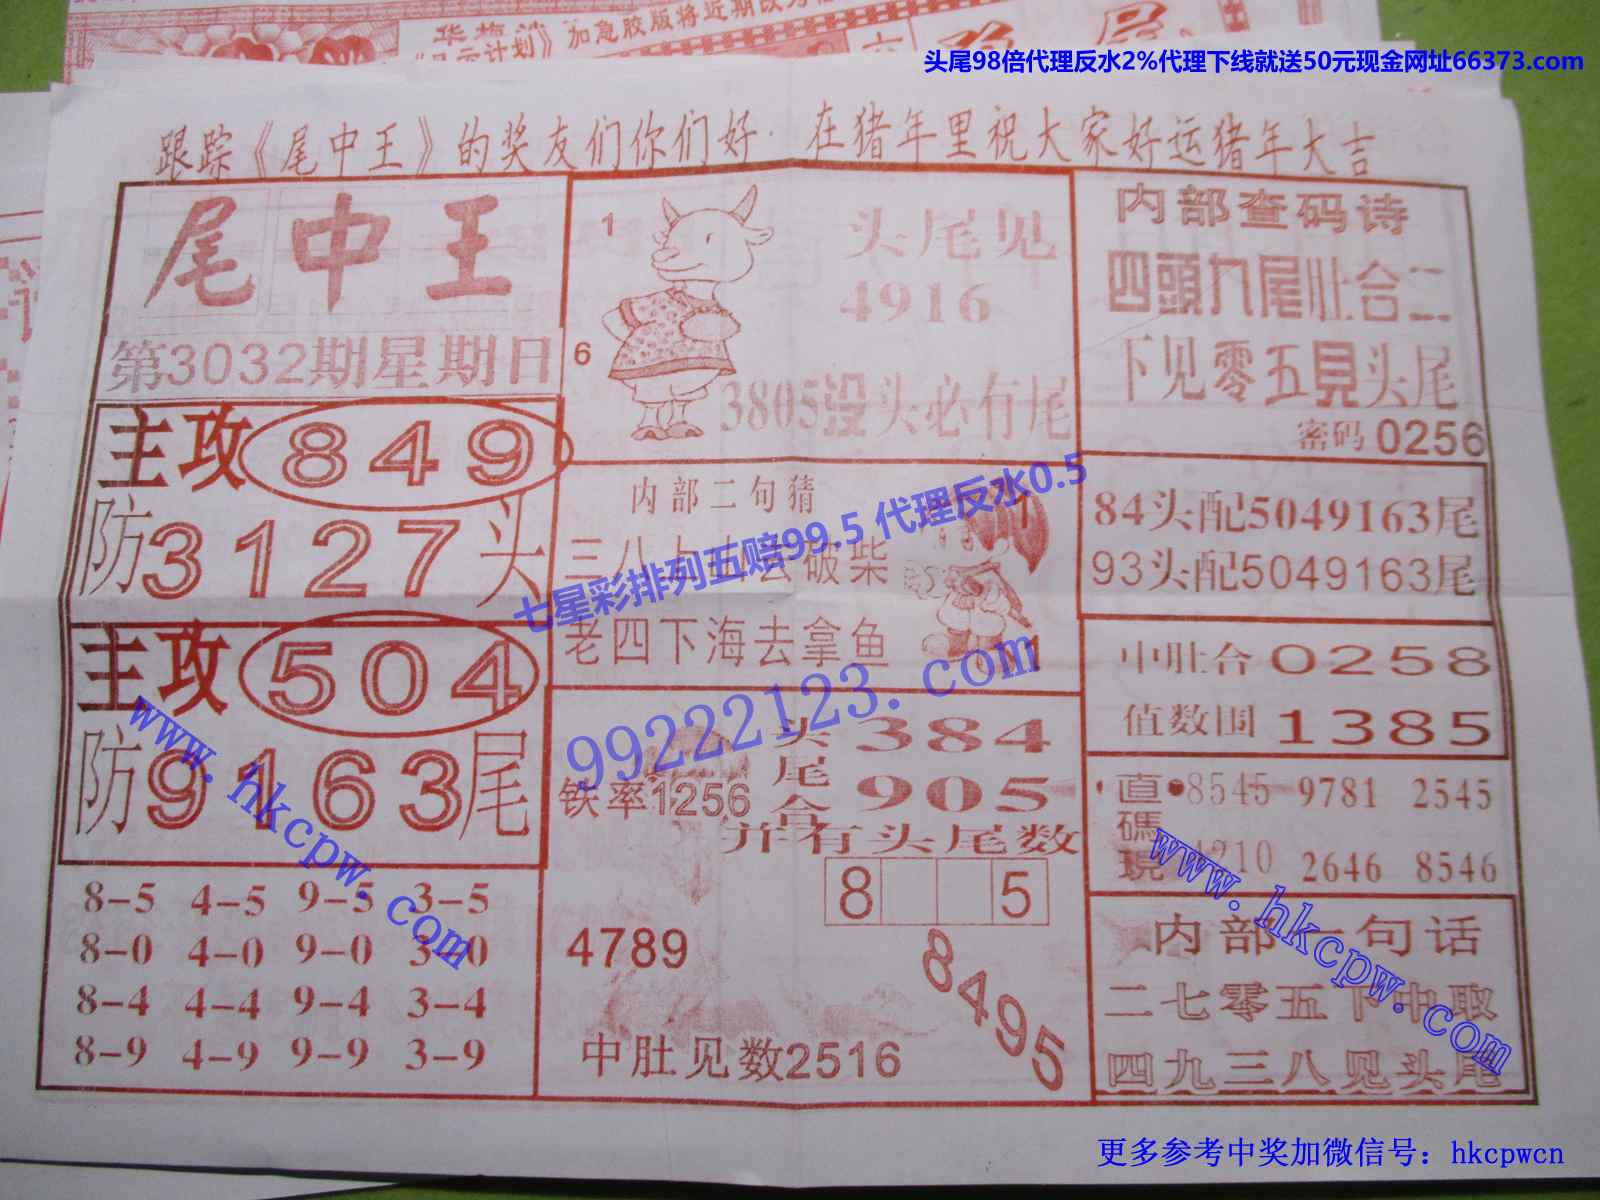 加急胶版将近期改为
头尾98倍代理反水2%代理下线就送50元现金网址66373.com
跟踪《尾中王》的奖友们你们好.在猪年里祝大家好运猪年大吉
尾中王
第3032期星期日
主攻849
防3127头
主攻504
防9163尾
8-5 4-5 9-5 3-5
8-0 4-0 9-0 3-0
8-4 4-4 9-4 3-4
8-9 4-9 9-9 3-9
1
6
头尾见
4916
3805没头必有尾
内部二句猜
三八上山去破柴
老四下海去拿鱼
1
11
头384
尾
合905
铁率1256
并有头尾数
8 5
4789
8495
中肚见数2516
内部查码诗
四頭九尾肚合二
下见零五見头尾
密码0256
84头配5049163尾
93头配5049163尾
中肚合0258
值数围1385
直碼現
8545 9781 2545
4210 2646 8546
内部一句话
二七零五下中取
四九三八见头尾
七星彩排列五赔99.5 代理反水0.5
99222123.com
www.hkcpw.com
www.hkcpw.com
更多参考中奖加微信号：hkcpwcn